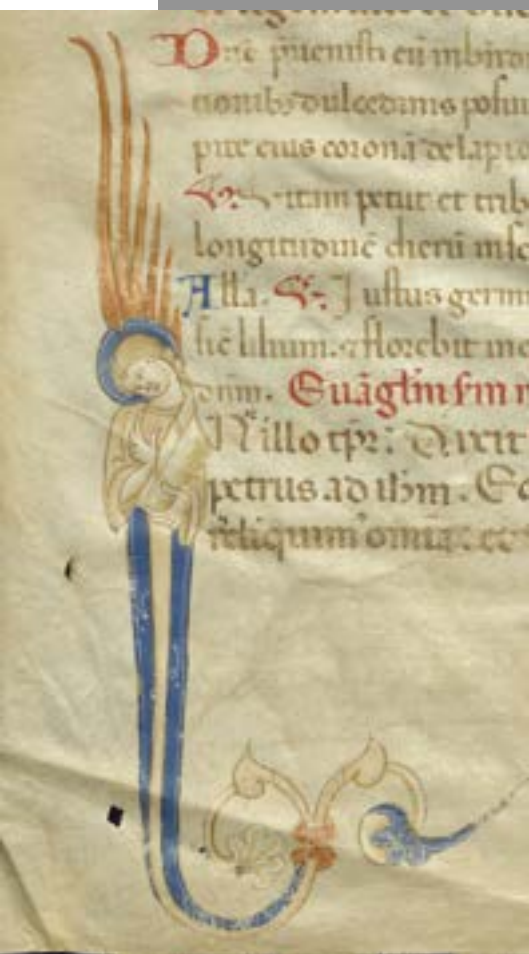 Dñe p̃uenisti eũ in bñdi
ctionibꝫ dulcedinis posui
pite eius coronã de lapid
℣. Uitam petiit et trib
longitudinẽ dierũ in sc̃
Alla. ℣. Iustus germ
sic̃ lilium. ⁊ florebit in e
dñm. Euãgl̃m s̃m m
IN illo tp̃r. Dixit
petrus ad ih̃m. Ec
reliquimꝰ omĩa. et